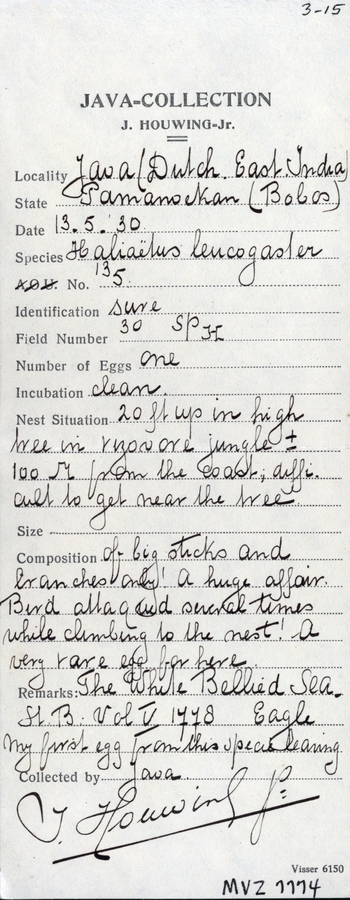 3-15
JAVA-COLLECTION
J. HOUWING-Jr.
Locality Java (Dutch. East. India)
State Pamanoekan (Bobos)
Date 13.5.'30
Species Haliaëtus leucogaster
A.O.U. No. 135.
Identification sure
Field Number 30 SP H
Number of Eggs one
Incubation clean.
Nest Situation 20 ft up in high
tree in jungle ±
100 M from the coast; diffi.
cult to get near the tree.
Size
Composition of big sticks and
branches only! A huge affair.
Bird attaqued several times
while climbing to the nest! A
very rare egg for here.
Remarks: The White Bellied Sea.
St. B. Vol V 1778 Eagle
My first egg from this specie leaving
Collected by Java.
J. Houwing Jr.
Visser 6150
MVZ 7774